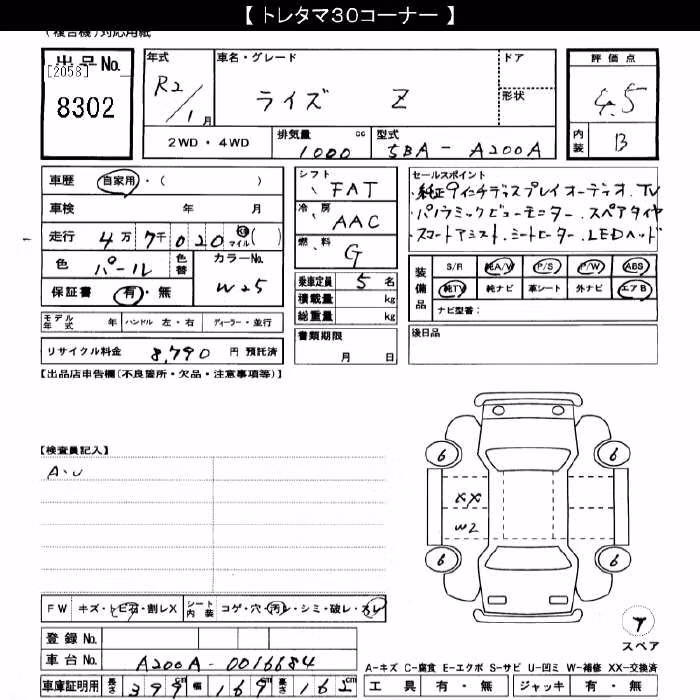 【 トレタマ30コーナー 】
(複合機)対応用紙
出品No. [2058] 8302
年式 R2/1月
車名・グレード ライズ Z
ドア
形状
評価点 4.5
内装 B
2WD・4WD
排気量 1000 cc
型式 5BA-A200A
車歴 自家用・( )
車検 年 月
走行 4万7千020 km マイル( )
色 パール 色替 カラーNo. W25
保証書 有・無
モデル年式 年 ハンドル 左・右 ディーラー・並行
リサイクル料金 8,790 円 預託済
シフト FAT
冷房 AAC
燃料 G
乗車定員 5 名
積載量 kg
総重量 kg
書類期限 月 日
セールスポイント
・純正9インチディスプレイオーディオ.TV
・パノラミックビューモニター.スペアタイヤ
・スマートアシスト.シートヒーター.LEDヘッド
装備品 S/R 純A/W P/S P/W ABS
純TV 純ナビ 革シート 外ナビ エアB
ナビ型番:
後日品
【出品店申告欄(不良箇所・欠品・注意事項等)】
【検査員記入】
A・U
6 6
XX
W2
6 6
FW キズ・トビ石・割レX シート内装 コゲ・穴・汚レ・シミ・破レ・スレ
登録No.
車台No. A200A-0016684
車庫証明用 長さ 399 cm 幅 169 cm 高さ 162 cm
スペア
A-キズ C-腐食 E-エクボ S-サビ U-凹ミ W-補修 XX-交換済
工具 有・無 ジャッキ 有・無